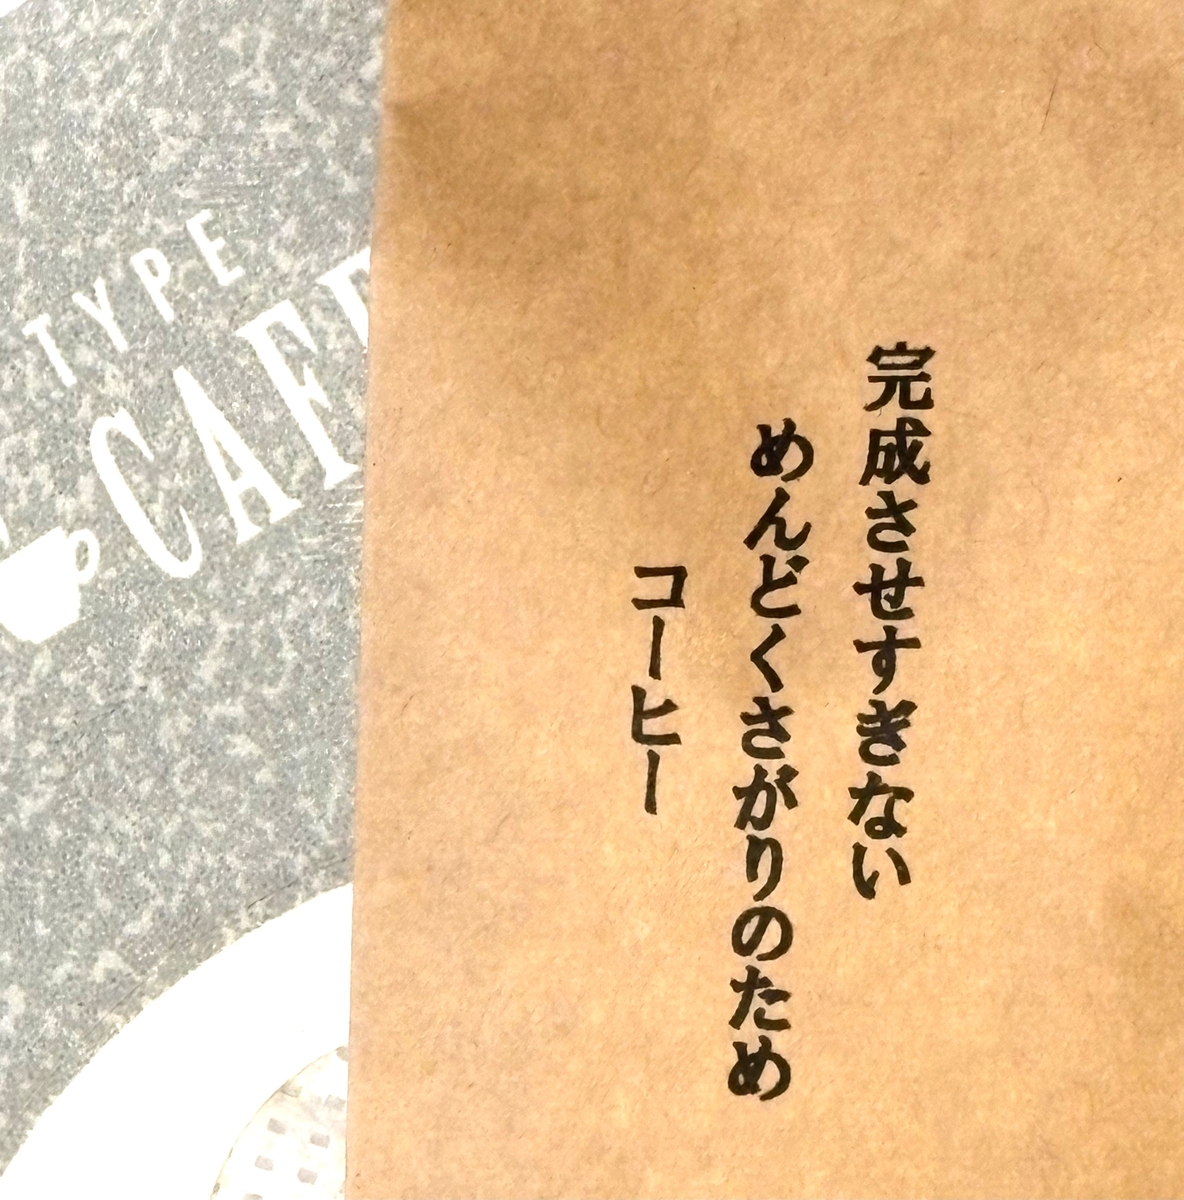 完成させすぎない
めんどくさがりのため
コーヒー
TYPE
CAFE